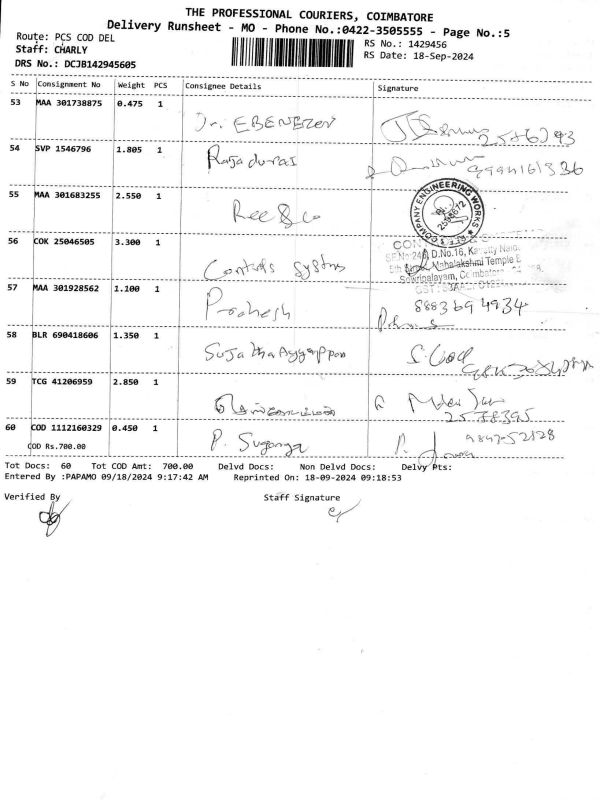 THE PROFESSIONAL COURIERS, COIMBATORE
Delivery Runsheet - MO - Phone No.:0422-3505555 - Page No.:5
Route: PCS COD DEL
RS No.: 1429456
Staff: CHARLY
RS Date: 18-Sep-2024
DRS No.: DCJB142945605
S No Consignment No Weight PCS Consignee Details Signature
53 MAA 301738875 0.475 1 Dr. EBENEZER
54 SVP 1546796 1.805 1 Rajadurai
55 MAA 301683255 2.550 1 Ree & Co
COMPANY ENGINEERING WORKS
56 COK 25046505 3.300 1 Controls Systms
D.No.16,
Mahalakshmi Temple
Sowripalayam, Coimbatore
57 MAA 301928562 1.100 1 Prakesh 8883694934
58 BLR 690418606 1.350 1 Sujatha Ayyappan
59 TCG 41206959 2.850 1
60 COD 1112160329 0.450 1 P. Suganya
COD Rs.700.00
Tot Docs: 60 Tot COD Amt: 700.00 Delvd Docs: Non Delvd Docs: Delvy Pts:
Entered By :PAPAMO 09/18/2024 9:17:42 AM Reprinted On: 18-09-2024 09:18:53
Verified By Staff Signature